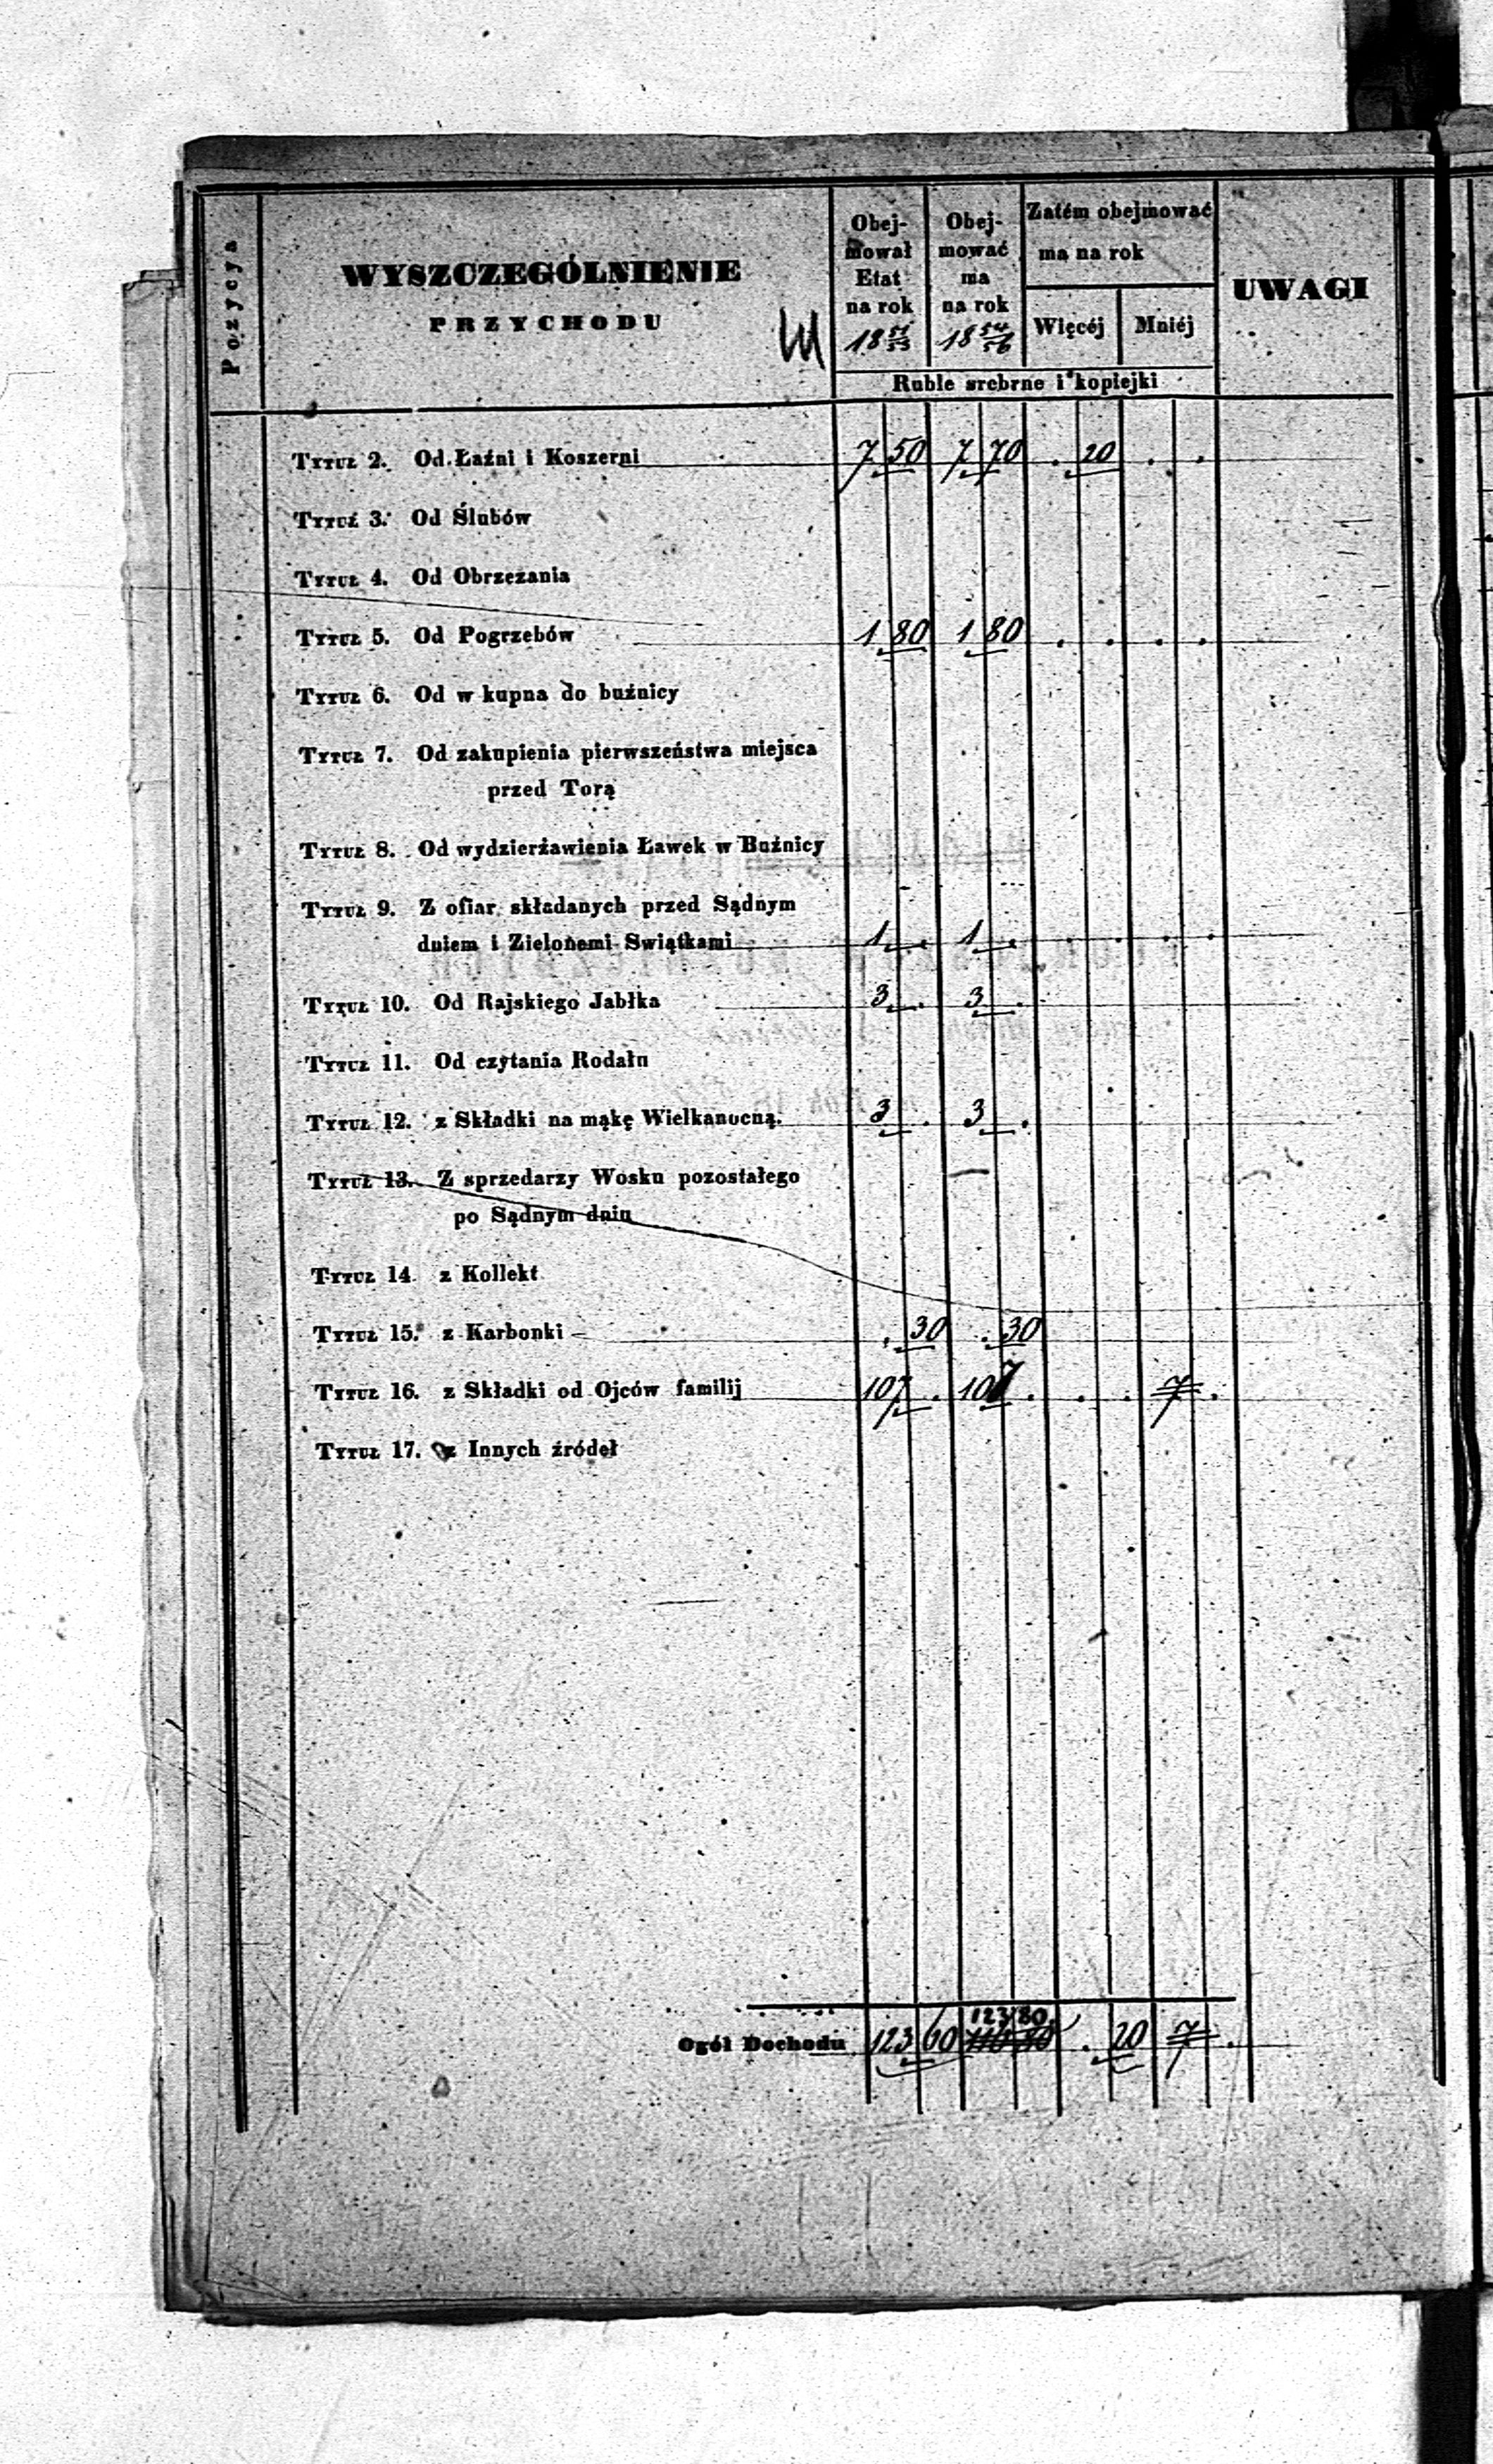 Pozycya
WYSZCZEGÓLNIENIE
PRZYCHODU
Obej-
mował
Etat
na rok
18 51/53
Obej-
mować
ma
na rok
18 54/56
Zatém obejmować
ma na rok
Więcéj Mniéj
UWAGI
Ruble srebrne i kopiejki
Tytuł 2. Od Łaźni i Koszerni 7 50 7 70 . 20 . .
Tytuł 3. Od Ślubów
Tytuł 4. Od Obrzezania
Tytuł 5. Od Pogrzebów 1 80 1 80 . . . .
Tytuł 6. Od w kupna do buźnicy
Tytuł 7. Od zakupienia pierwszeństwa miejsca
przed Torą
Tytuł 8. Od wydzierżawienia Ławek w Buźnicy
Tytuł 9. Z ofiar składanych przed Sądnym
dniem i Zielonemi Swiątkami 1 . 1 . . . . .
Tytuł 10. Od Rajskiego Jabłka 3 . 3 .
Tytuł 11. Od czytania Rodału
Tytuł 12. z Składki na mąkę Wielkanocną. 3 . 3 .
Tytuł 13. Z sprzedarzy Wosku pozostałego
po Sądnym dniu
Tytuł 14. z Kollekt
Tytuł 15. z Karbonki . 30 . 30
Tytuł 16. z Składki od Ojców familij 107 . 107 . . . 7 .
Tytuł 17. z Innych źródeł
123 80
Ogół Dochodu 123 60 116 80 . 20 7 .